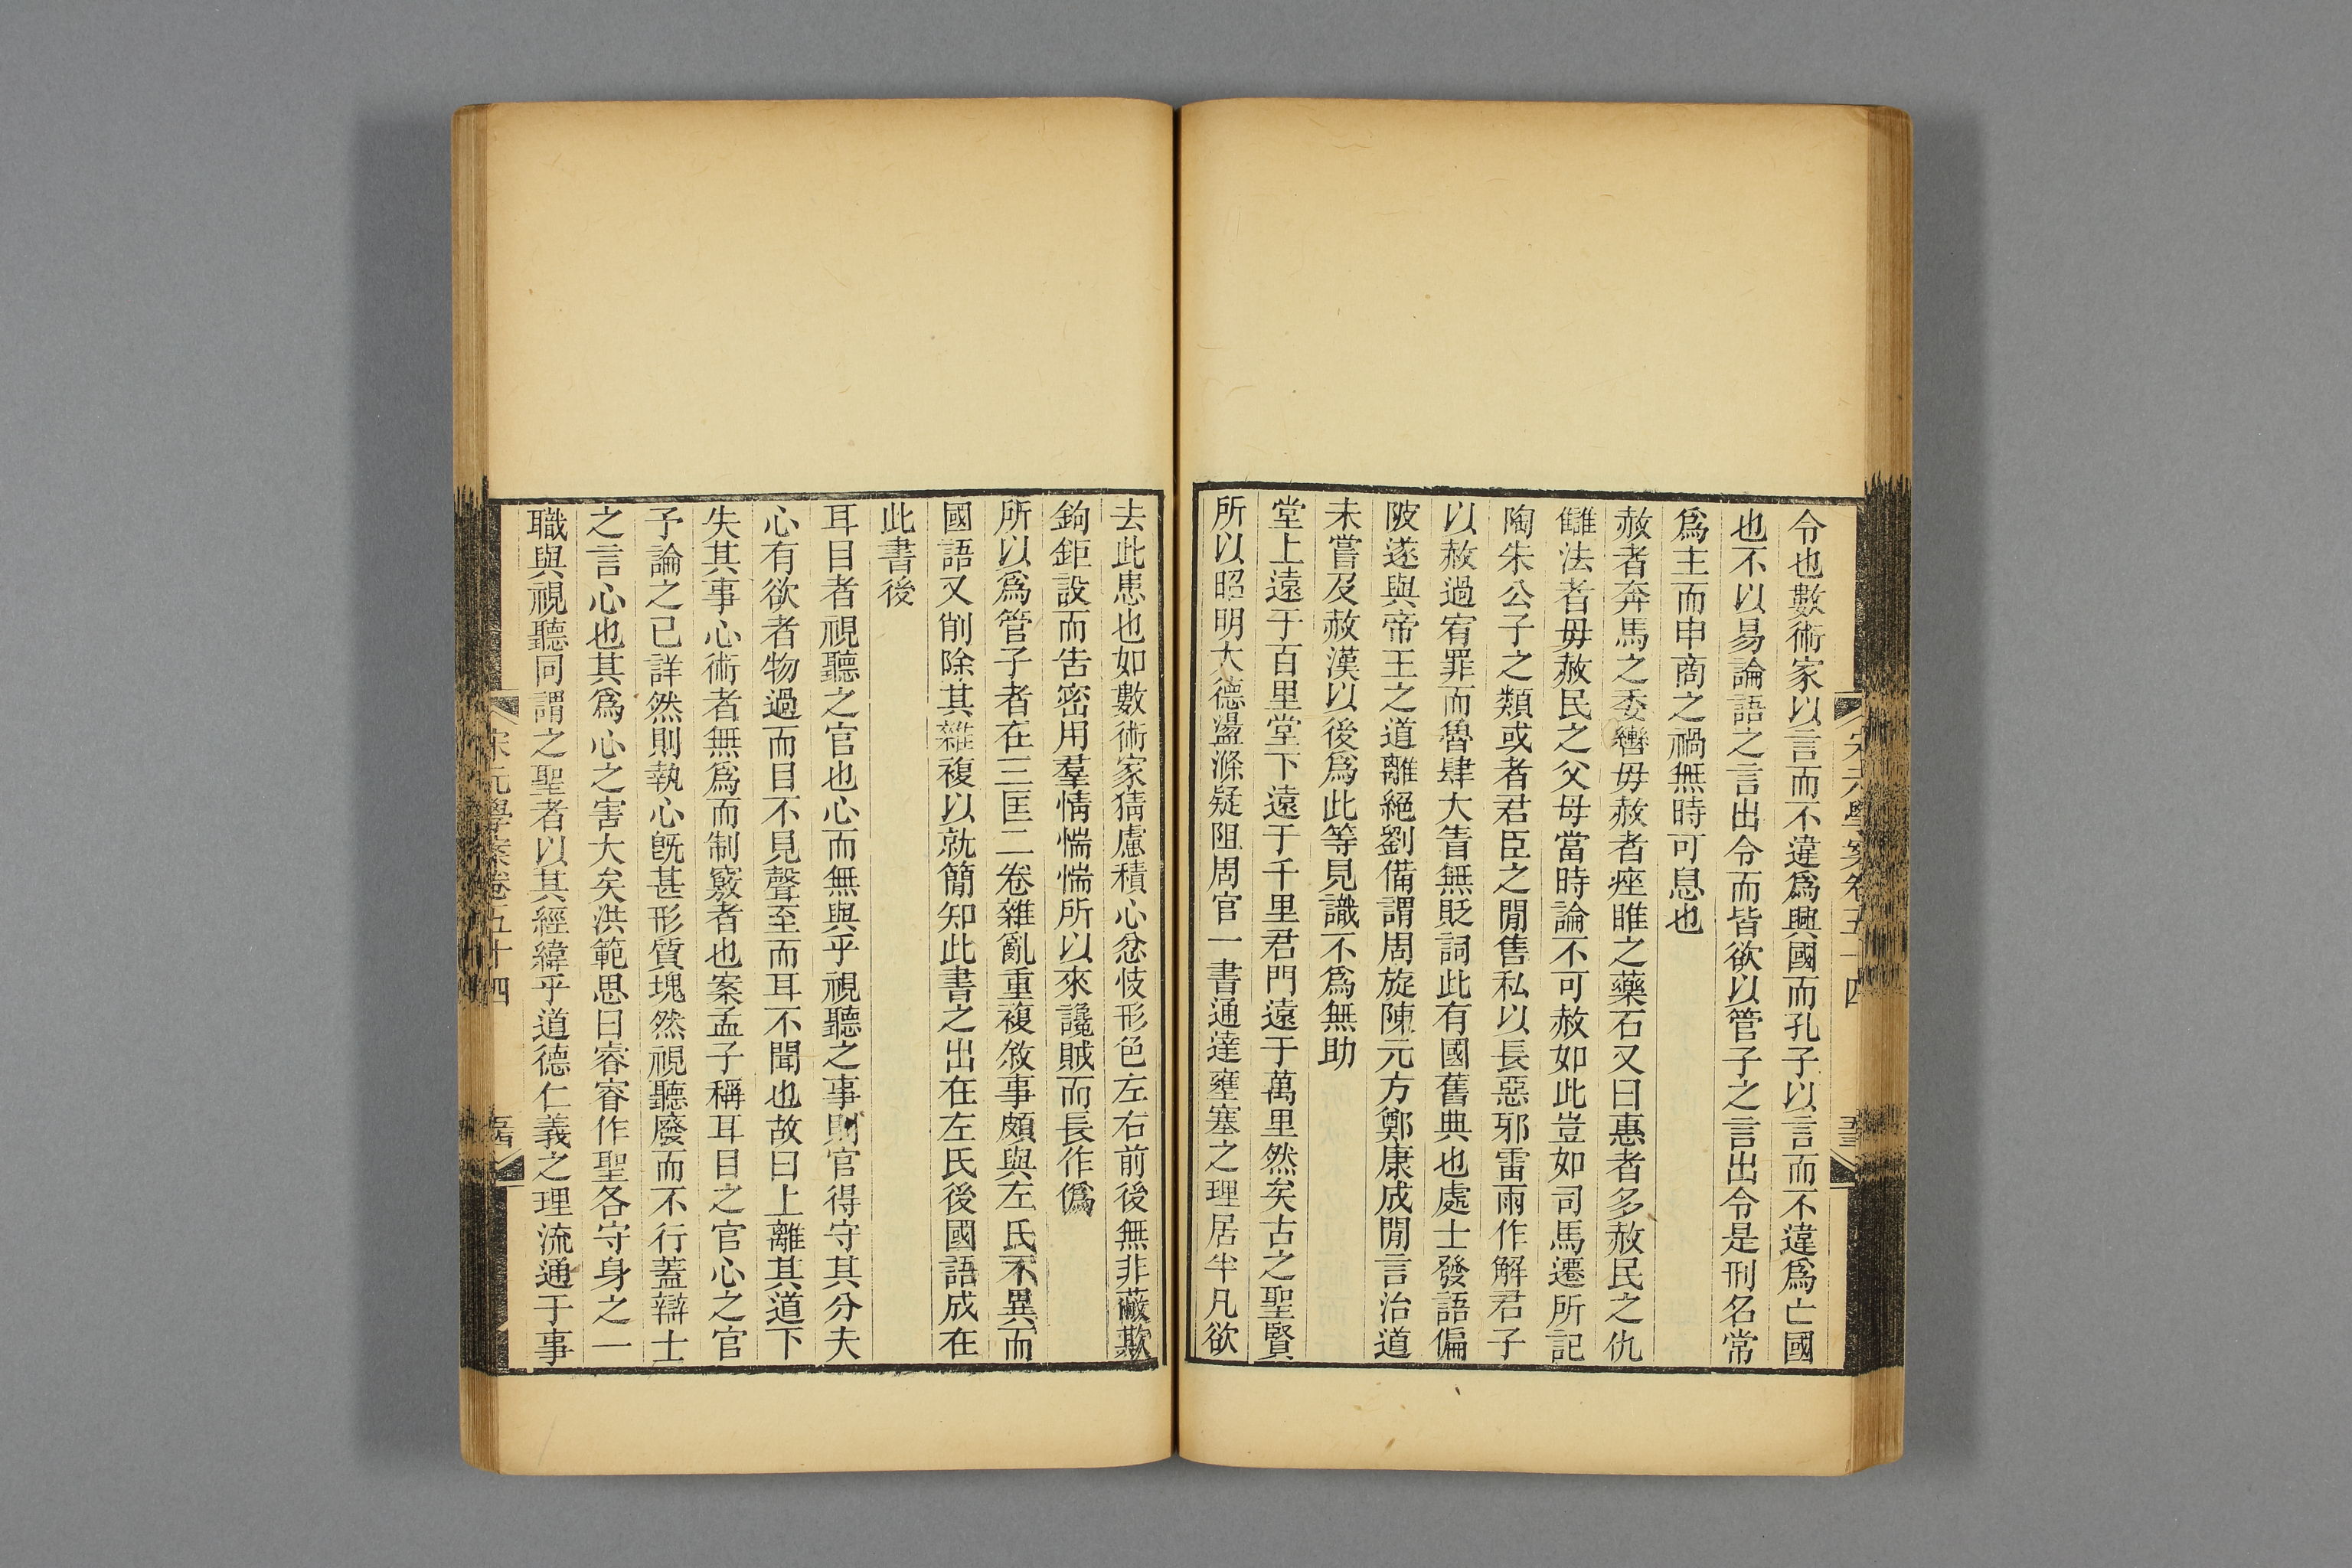 令也數術家以言而不違爲興國而孔子以言而不違爲亡國
也不以易論語之言出令而皆欲以管子之言出令是刑名常
爲主而申商之禍無時可息也
赦者奔馬之委轡毋赦者痤睢之藥石又曰惠者多赦民之仇
讎法者毋赦民之父母當時論不可赦如此豈如司馬遷所記
陶朱公子之類或者君臣之閒售私以長惡邪雷雨作解君子
以赦過宥罪而魯肆大眚無貶詞此有國舊典也處士發語偏
陂遂與帝王之道離絕劉備謂周旋陳元方鄭康成閒言治道
未嘗及赦漢以後爲此等見識不爲無助
堂上遠于百里堂下遠于千里君門遠于萬里然矣古之聖賢
所以昭明大德盪滌疑阻周官一書通達壅塞之理居半凡欲
去此患也如數術家猜慮積心忿忮形色左右前後無非蔽欺
鉤鉅設而吿密用羣情惴惴所以來讒賊而長作僞
所以爲管子者在三匡二卷雜亂重複敘事頗與左氏不異而
國語又削除其雜複以就簡知此書之出在左氏後國語成在
此書後
耳目者視聽之官也心而無與乎視聽之事則官得守其分夫
心有欲者物過而目不見聲至而耳不聞也故曰上離其道下
失其事心術者無爲而制竅者也案孟子稱耳目之官心之官
予論之已詳然則執心旣甚形質塊然視聽廢而不行蓋辯士
之言心也其爲心之害大矣洪範思曰睿睿作聖各守身之一
職與視聽同謂之聖者以其經緯乎道德仁義之理流通于事
宋元學案卷五十四